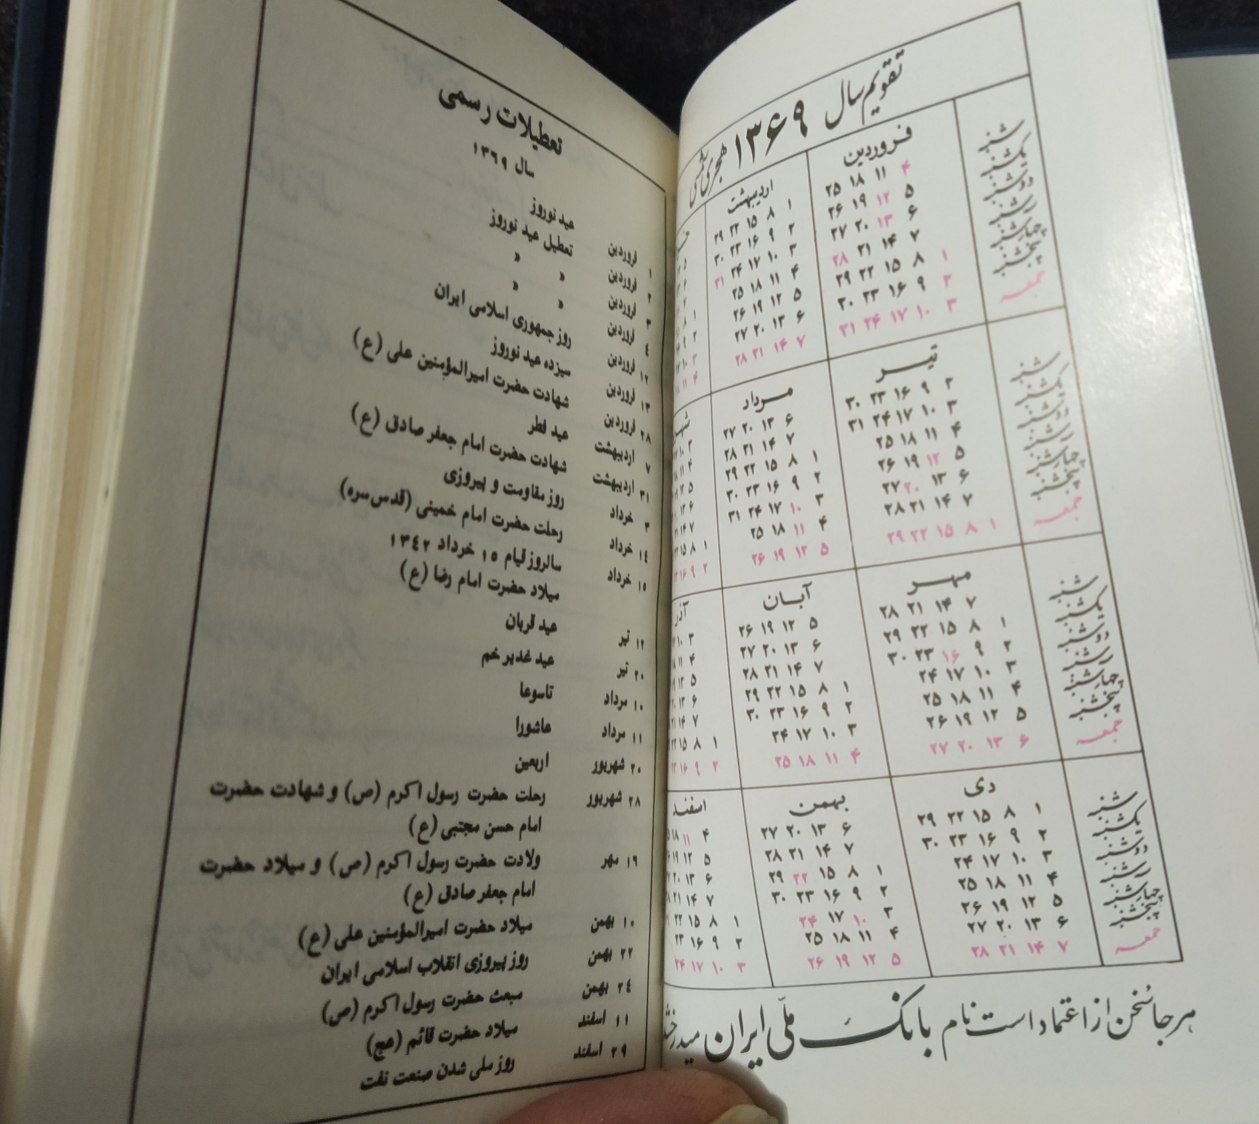 تقویم سال ۱۳۶۹ هجری شمسی
فروردین
اردیبهشت
شنبه ۴ ۱۱ ۱۸ ۲۵
یکشنبه ۵ ۱۲ ۱۹ ۲۶
دوشنبه ۶ ۱۳ ۲۰ ۲۷
سه‌شنبه ۷ ۱۴ ۲۱ ۲۸
چهارشنبه ۱ ۸ ۱۵ ۲۲ ۲۹
پنجشنبه ۲ ۹ ۱۶ ۲۳ ۳۰
جمعه ۳ ۱۰ ۱۷ ۲۴ ۳۱
۱ ۸ ۱۵ ۲۲ ۲۹
۲ ۹ ۱۶ ۲۳ ۳۰
۳ ۱۰ ۱۷ ۲۴ ۳۱
۴ ۱۱ ۱۸ ۲۵
۵ ۱۲ ۱۹ ۲۶
۶ ۱۳ ۲۰ ۲۷
۷ ۱۴ ۲۱ ۲۸
تیر
مرداد
شنبه ۲ ۹ ۱۶ ۲۳ ۳۰
یکشنبه ۳ ۱۰ ۱۷ ۲۴ ۳۱
دوشنبه ۴ ۱۱ ۱۸ ۲۵
سه‌شنبه ۵ ۱۲ ۱۹ ۲۶
چهارشنبه ۶ ۱۳ ۲۰ ۲۷
پنجشنبه ۷ ۱۴ ۲۱ ۲۸
جمعه ۱ ۸ ۱۵ ۲۲ ۲۹
۶ ۱۳ ۲۰ ۲۷
۷ ۱۴ ۲۱ ۲۸
۱ ۸ ۱۵ ۲۲ ۲۹
۲ ۹ ۱۶ ۲۳ ۳۰
۳ ۱۰ ۱۷ ۲۴ ۳۱
۴ ۱۱ ۱۸ ۲۵
۵ ۱۲ ۱۹ ۲۶
مهر
آبان
آذر
شنبه ۷ ۱۴ ۲۱ ۲۸
یکشنبه ۱ ۸ ۱۵ ۲۲ ۲۹
دوشنبه ۲ ۹ ۱۶ ۲۳ ۳۰
سه‌شنبه ۳ ۱۰ ۱۷ ۲۴
چهارشنبه ۴ ۱۱ ۱۸ ۲۵
پنجشنبه ۵ ۱۲ ۱۹ ۲۶
جمعه ۶ ۱۳ ۲۰ ۲۷
۵ ۱۲ ۱۹ ۲۶
۶ ۱۳ ۲۰ ۲۷
۷ ۱۴ ۲۱ ۲۸
۱ ۸ ۱۵ ۲۲ ۲۹
۲ ۹ ۱۶ ۲۳ ۳۰
۳ ۱۰ ۱۷ ۲۴
۴ ۱۱ ۱۸ ۲۵
دی
بهمن
اسفند
شنبه ۱ ۸ ۱۵ ۲۲ ۲۹
یکشنبه ۲ ۹ ۱۶ ۲۳ ۳۰
دوشنبه ۳ ۱۰ ۱۷ ۲۴
سه‌شنبه ۴ ۱۱ ۱۸ ۲۵
چهارشنبه ۵ ۱۲ ۱۹ ۲۶
پنجشنبه ۶ ۱۳ ۲۰ ۲۷
جمعه ۷ ۱۴ ۲۱ ۲۸
۶ ۱۳ ۲۰ ۲۷
۷ ۱۴ ۲۱ ۲۸
۱ ۸ ۱۵ ۲۲ ۲۹
۲ ۹ ۱۶ ۲۳ ۳۰
۳ ۱۰ ۱۷ ۲۴
۴ ۱۱ ۱۸ ۲۵
۵ ۱۲ ۱۹ ۲۶
هر جا سخن از اعتماد است نام بانک ملّی ایران
تعطیلات رسمی
سال ۱۳۶۹
۱ فروردین عید نوروز
۲ فروردین تعطیل عید نوروز
۳ فروردین " "
۴ فروردین " "
۱۲ فروردین روز جمهوری اسلامی ایران
۱۳ فروردین سیزده عید نوروز
۲۸ فروردین شهادت حضرت امیرالمؤمنین علی (ع)
۷ اردیبهشت عید فطر
۳۱ اردیبهشت شهادت حضرت امام جعفر صادق (ع)
۳ خرداد روز مقاومت و پیروزی
۱۴ خرداد رحلت حضرت امام خمینی (قدس‌سره)
۱۵ خرداد سالروز قیام ۱۵ خرداد ۱۳۴۲
میلاد حضرت امام رضا (ع)
۱۲ تیر عید قربان
۲۰ تیر عید غدیر خم
۱۰ مرداد تاسوعا
۱۱ مرداد عاشورا
۲۰ شهریور اربعین
۲۸ شهریور رحلت حضرت رسول اکرم (ص) و شهادت حضرت
امام حسن مجتبی (ع)
۱۹ مهر ولادت حضرت رسول اکرم (ص) و میلاد حضرت
امام جعفر صادق (ع)
۱۰ بهمن میلاد حضرت امیرالمؤمنین علی (ع)
۲۲ بهمن روز پیروزی انقلاب اسلامی ایران
۲۴ بهمن مبعث حضرت رسول اکرم (ص)
۱۱ اسفند میلاد حضرت قائم (عج)
۲۹ اسفند روز ملی شدن صنعت نفت